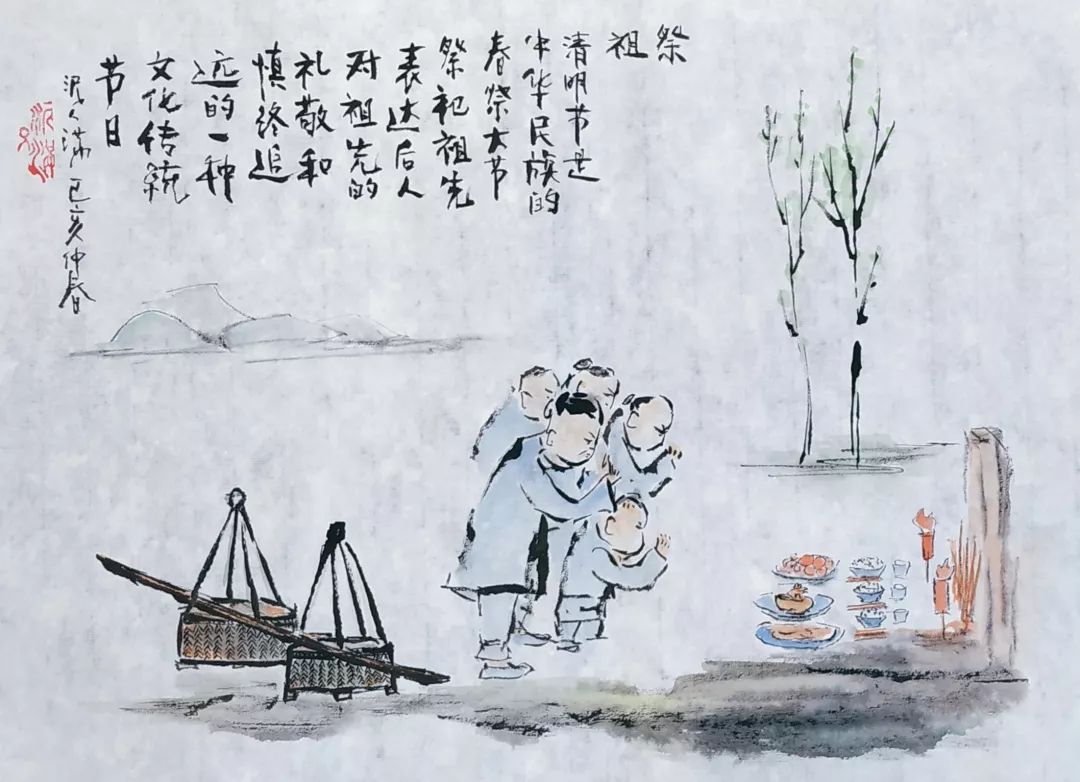 祭
祖
清明节是
中华民族的
春祭大节
祭祀祖先
表达后人
对祖先的
礼敬和
慎终追
远的一种
文化传统
节日
己亥仲春